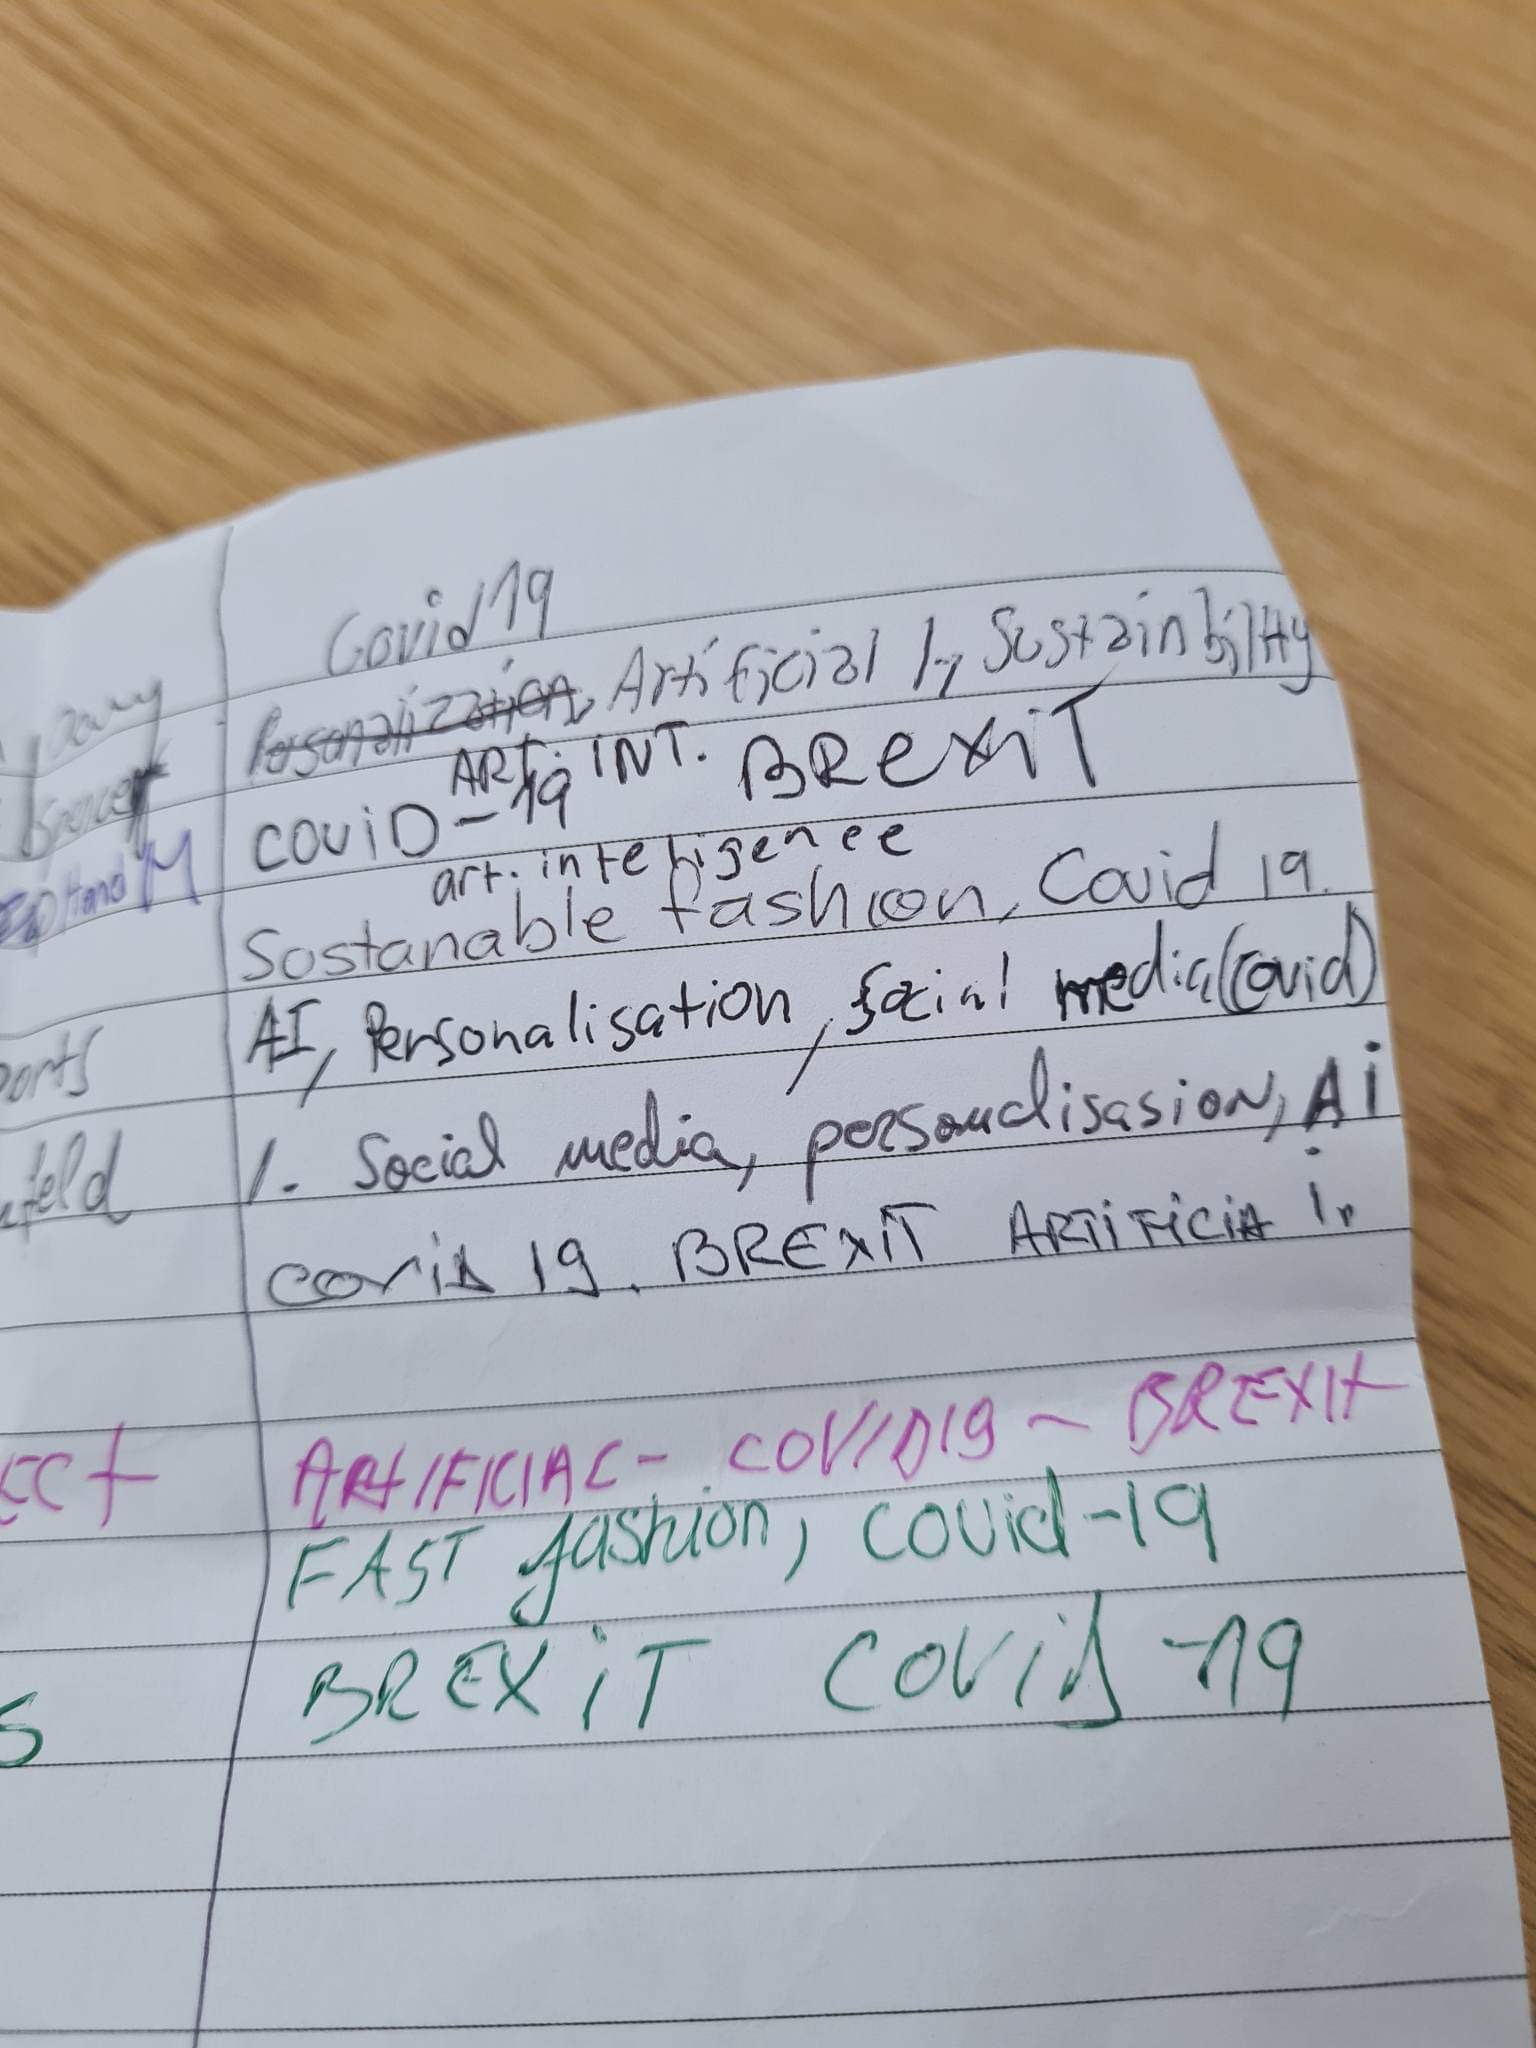 Covid 19
Personalizzation, Artificial I, Sustainibility
ART. INT.
COViD-19 BRexiT
art. inteligence
Sostanable fashion, Covid 19.
Hand M
AI, Personalisation, social media (covid)
1. Social media, personalisasion, Ai
covid 19. BREXiT ARTiFiCiA i.
ARTIFICIAL - COVID19 - BREXIT
FAST fashion, covid-19
BREXiT COViD-19